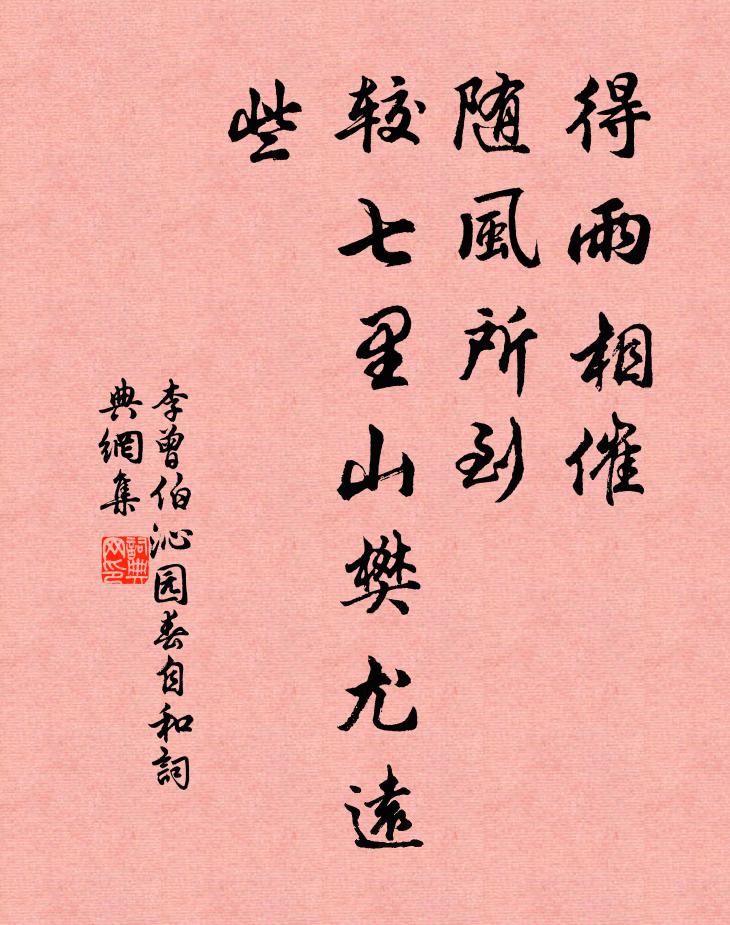 得雨相催
随風所到
較七里山樊尤遠
些
李曾伯沁园春自和詞
典網集
詞典網印